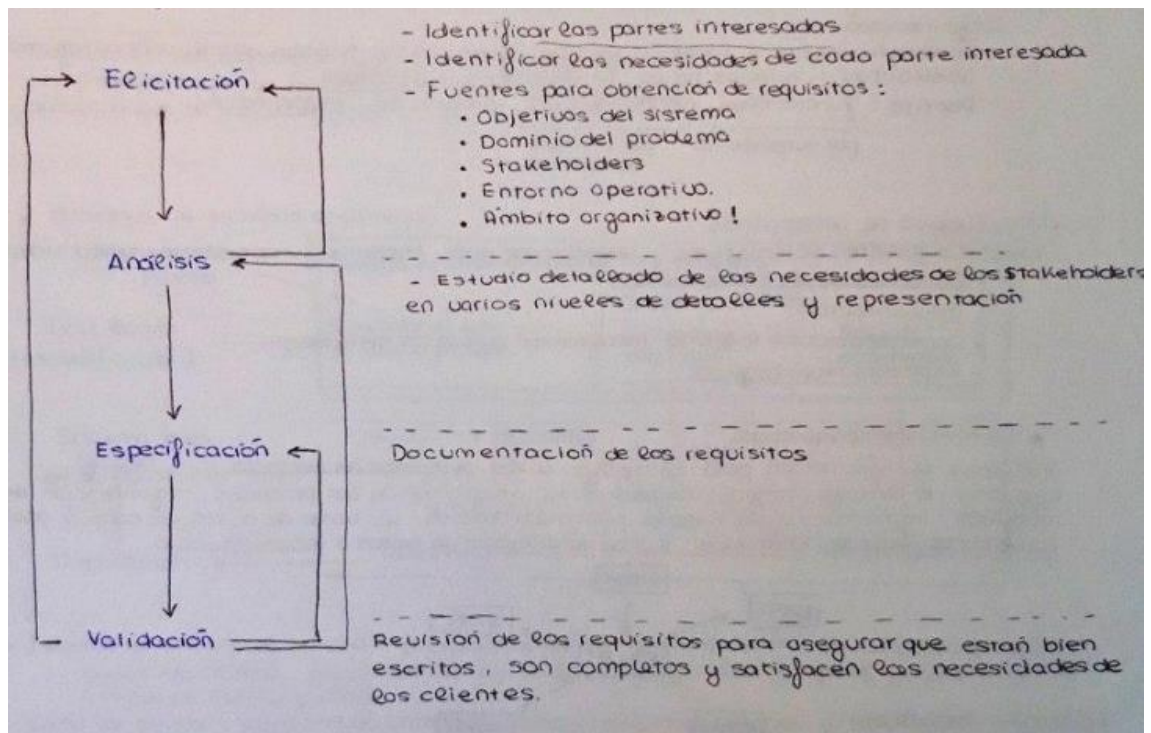 - Identificar las partes interesadas
- Identificar las necesidades de cada parte interesada
Elicitación
- Fuentes para obtención de requisitos:
• Objetivos del sistema
• Dominio del problema
• Stakeholders
• Entorno operativo.
• Ámbito organizativo!
Análisis
- Estudio detallado de las necesidades de los stakeholders
en varios niveles de detalles y representación
Especificación
Documentación de los requisitos
Validación
Revisión de los requisitos para asegurar que están bien
escritos, son completos y satisfacen las necesidades de
los clientes.